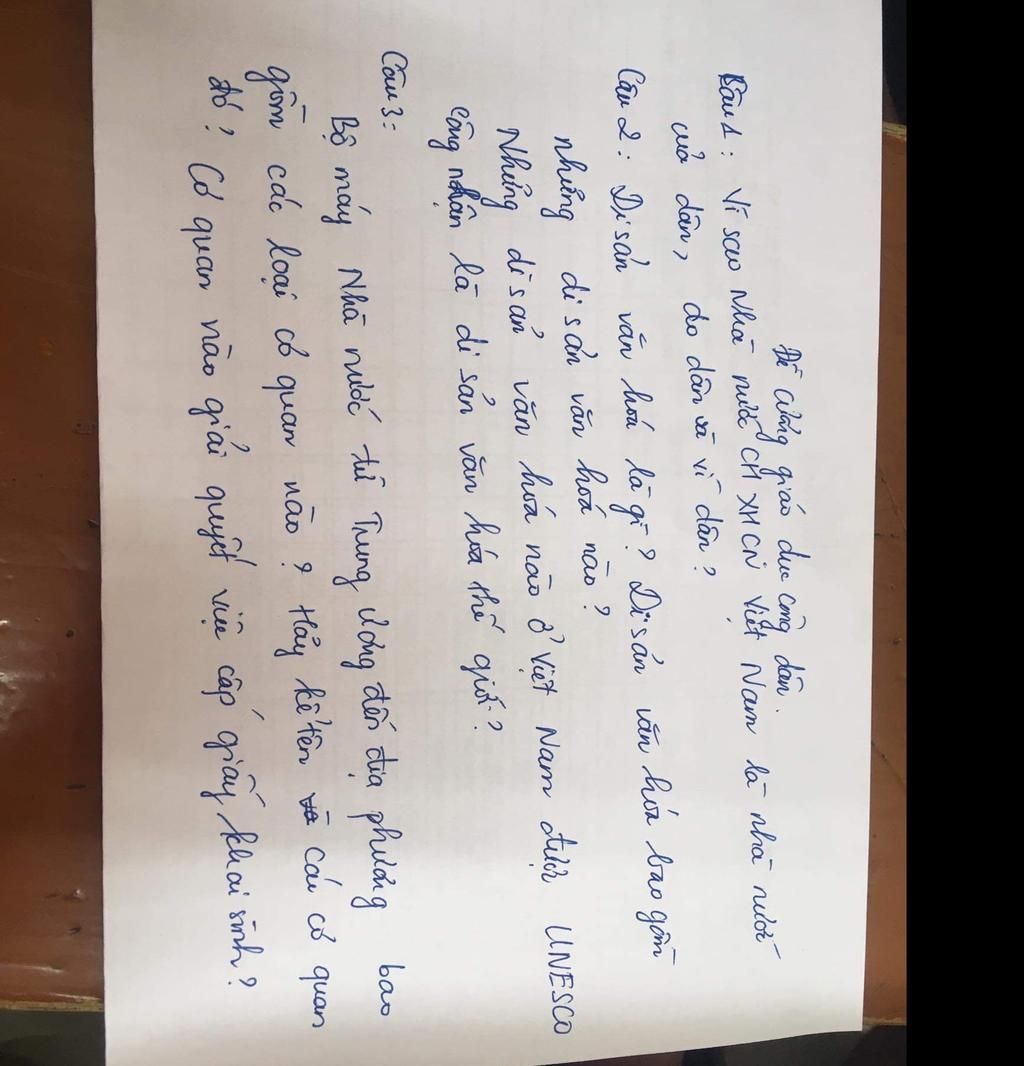 Đề cương giáo dục công dân.
Câu 1: Vì sao Nhà nước CH XHCN Việt Nam là nhà nước
của dân, do dân và vì dân?
Câu 2: Di sản văn hoá là gì? Di sản văn hóa bao gồm
những di sản văn hoá nào?
Những di sản văn hoá nào ở Việt Nam được UNESCO
công nhận là di sản văn hóa thế giới?
Câu 3:
Bộ máy Nhà nước từ Trung ương đến địa phương bao
gồm các loại cơ quan nào? Hãy kể tên các cơ quan
đó? Cơ quan nào giải quyết việc cấp giấy khai sinh?